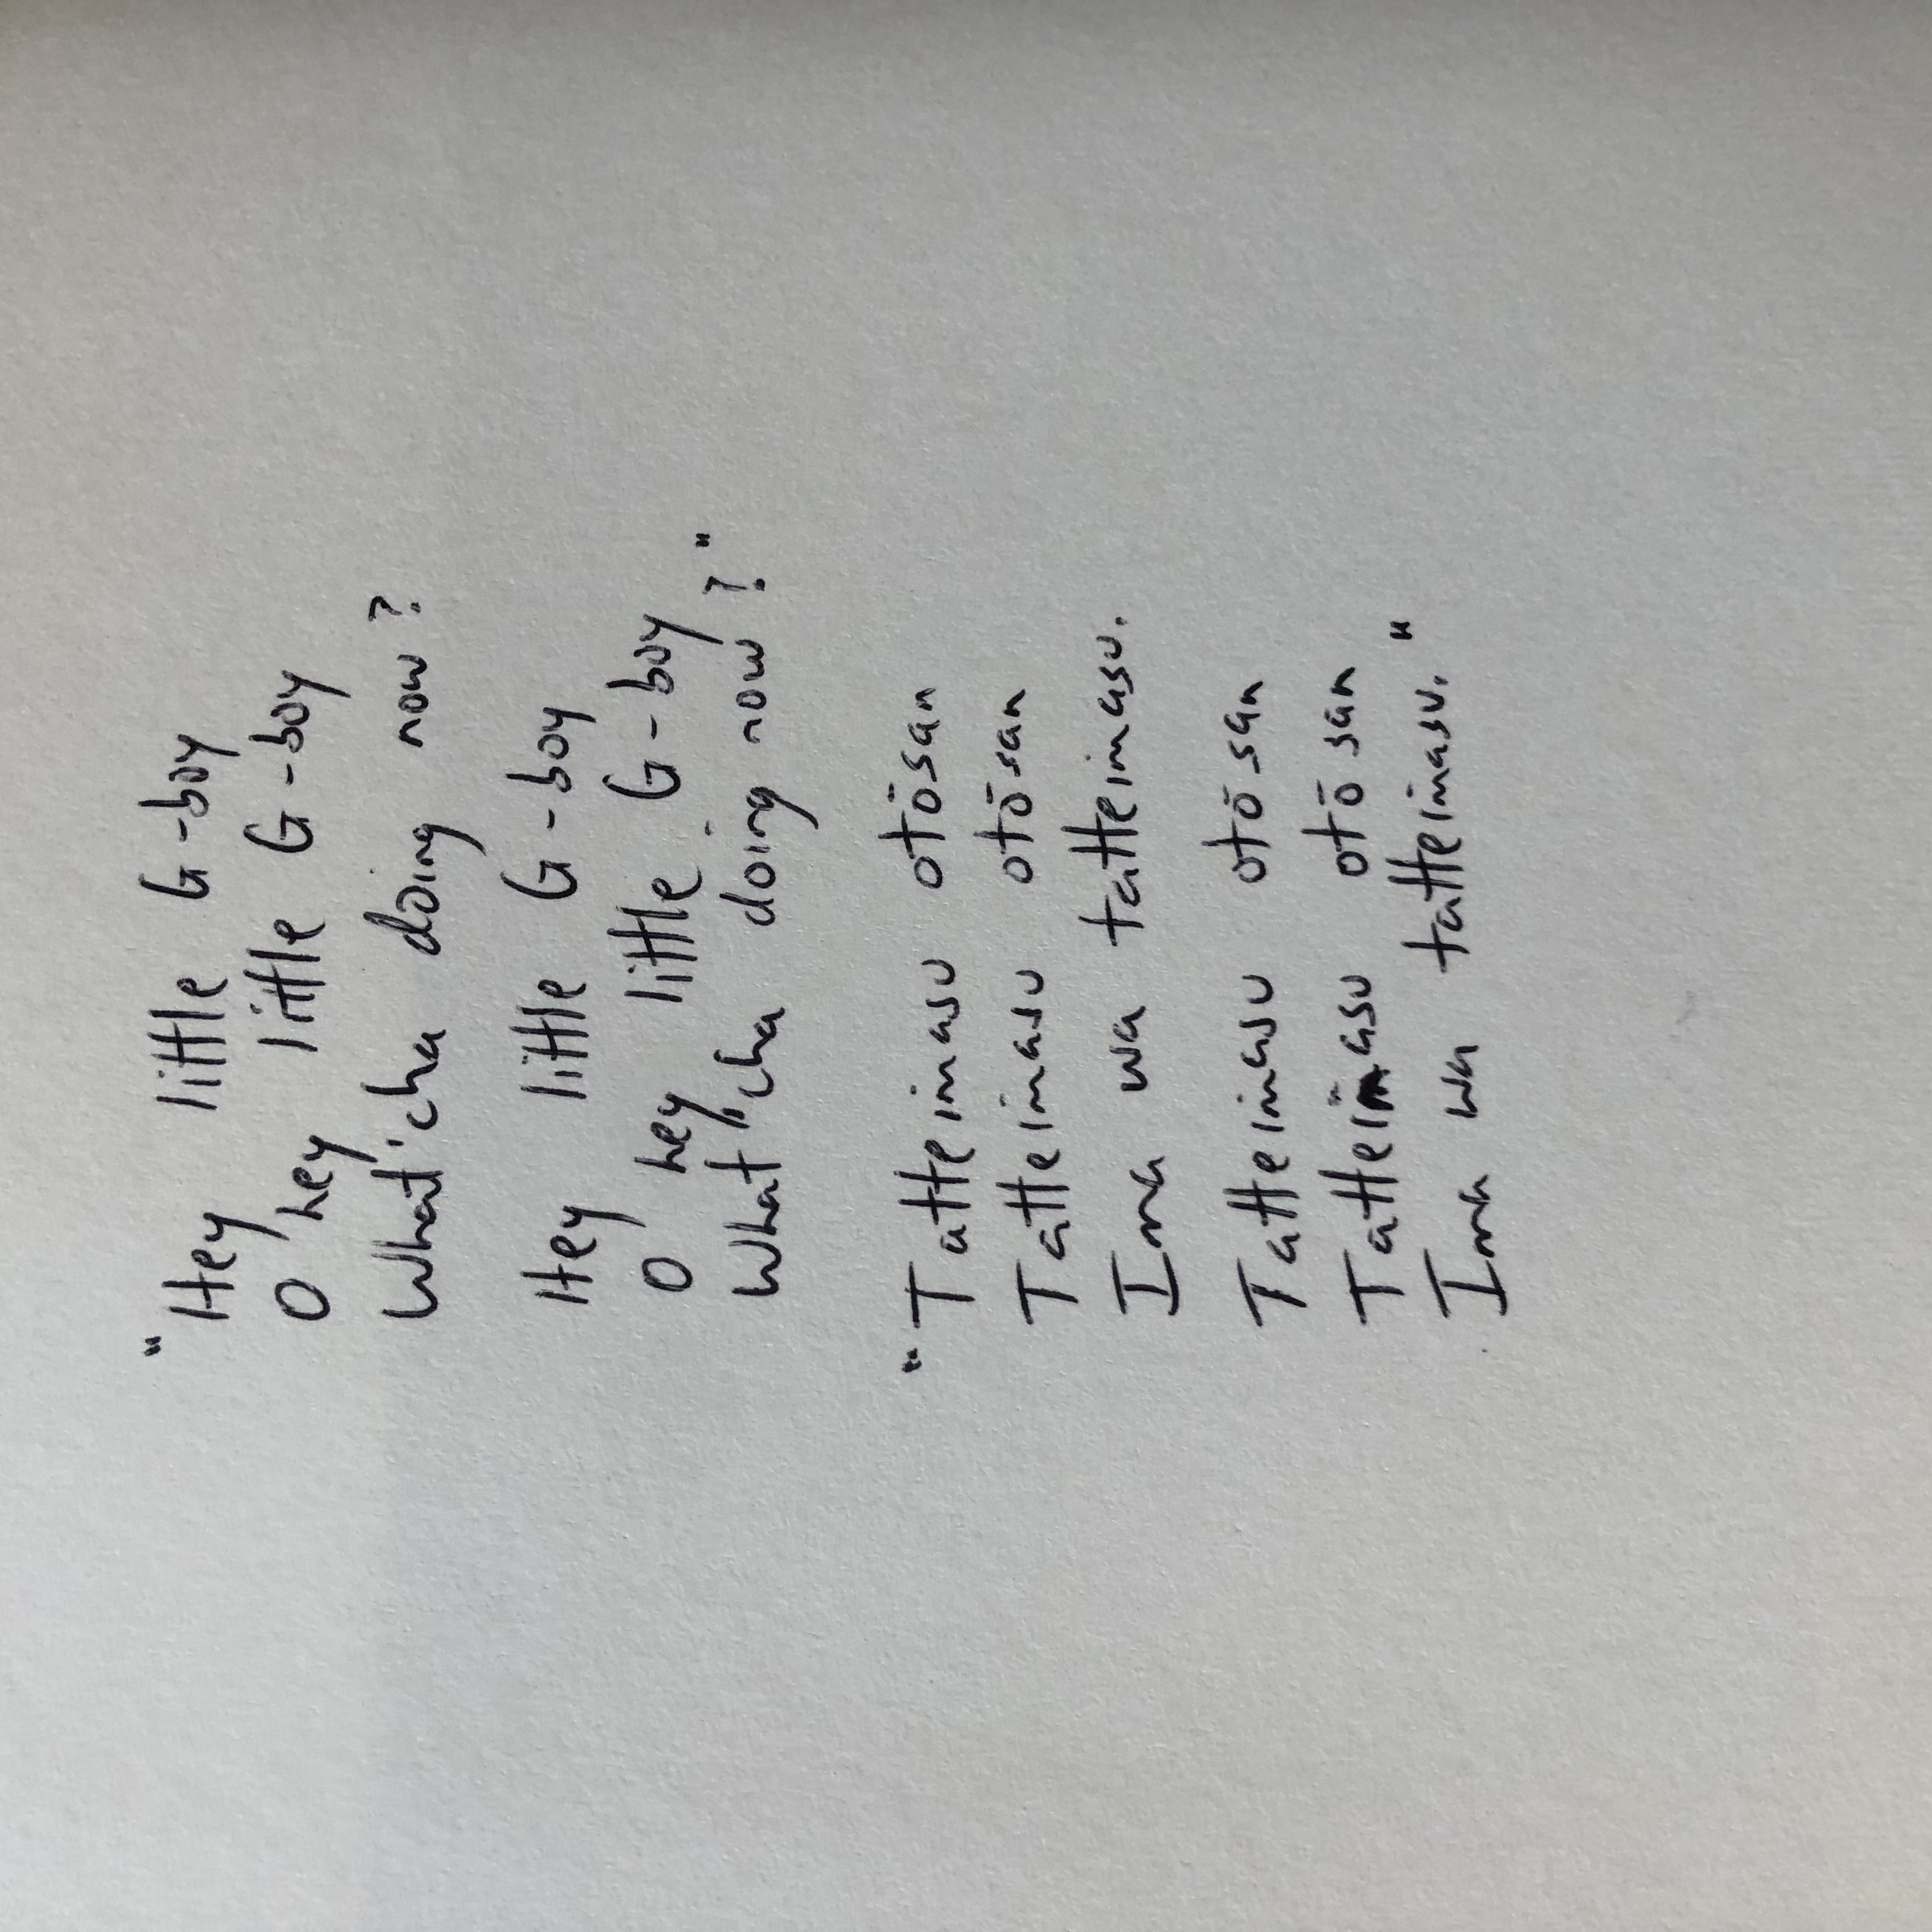 "Hey little G-boy
O hey little G-boy
What'cha doing now?
Hey little G-boy
O hey little G-boy
What'cha doing now?"
"Tatteimasu otōsan
Tatteimasu otōsan
Ima wa tatteimasu.
Tatteimasu otōsan
Tatteimasu otōsan
Ima wa tatteimasu."